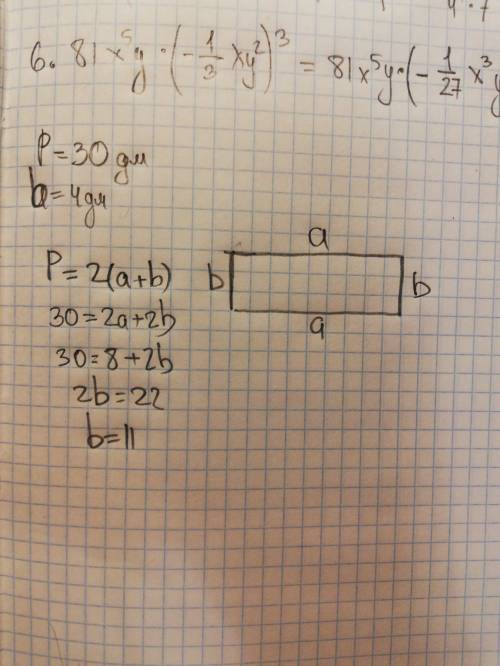 6. 81x⁵y · (-1/3 xy²)³ = 81x⁵y · (-1/27 x³y
P=30 дм
b=4дм
P=2(a+b)
30=2a+2b
30=8+2b
2b=22
b=11
a
b
b
a